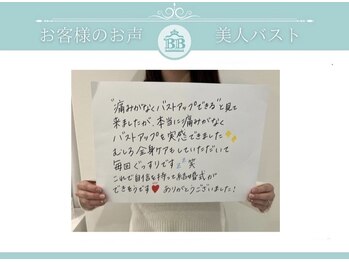 お客様のお声
BB
美人バスト
"痛みがなくバストアップできる"と見て
来ましたが、本当に痛みがなく
バストアップを実感できました✨
むしろ全身ケアもしていただいて
毎回ぐっすりです💤笑
これで自信を持って結婚式が
できそうです❤ありがとうございました!